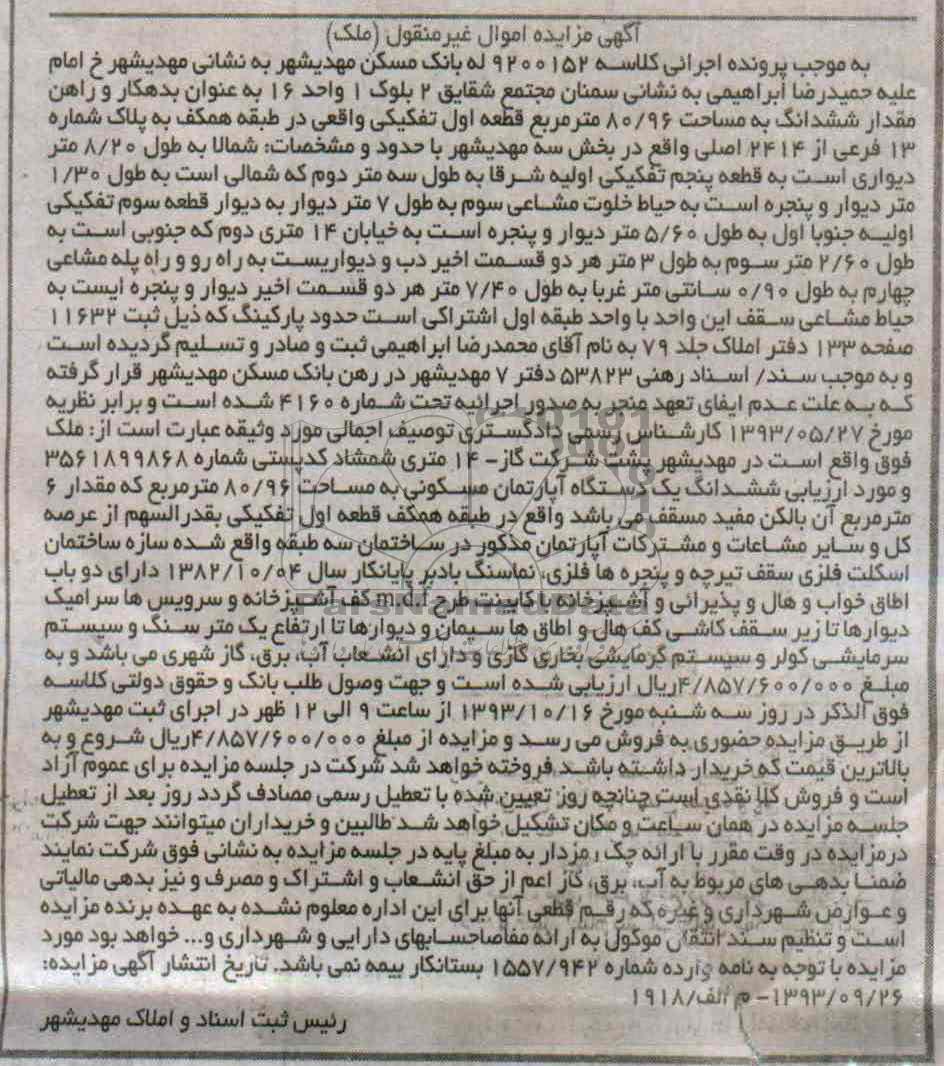 آگهی مزایده اموال غیرمنقول (ملک)
به موجب پرونده اجرائی کلاسه ۹۲۰۰۱۵۲ له بانک مسکن مهدیشهر به نشانی مهدیشهر خ امام
علیه حمیدرضا ابراهیمی به نشانی سمنان مجتمع شقایق ۲ بلوک ۱ واحد ۱۶ به عنوان بدهکار و راهن
مقدار ششدانگ به مساحت ۸۰/۹۶ مترمربع قطعه اول تفکیکی واقعی در طبقه همکف به پلاک شماره
۱۳ فرعی از ۲۴۱۴ اصلی واقع در بخش سه مهدیشهر با حدود و مشخصات: شمالا به طول ۸/۲۰ متر
دیواری است به قطعه پنجم تفکیکی اولیه شرقا به طول سه متر دوم که شمالی است به طول ۱/۳۰
متر دیوار و پنجره است به حیاط خلوت مشاعی سوم به طول ۷ متر دیوار به دیوار قطعه سوم تفکیکی
اولیه جنوبا اول به طول ۵/۶۰ متر دیوار و پنجره است به خیابان ۱۴ متری دوم که جنوبی است به
طول ۲/۶۰ متر سوم به طول ۳ متر هر دو قسمت اخیر دب و دیواریست به راه رو و راه پله مشاعی
چهارم به طول ۰/۹۰ سانتی متر غربا به طول ۷/۴۰ متر هر دو قسمت اخیر دیوار و پنجره ایست به
حیاط مشاعی سقف این واحد با واحد طبقه اول اشتراکی است حدود پارکینگ که ذیل ثبت ۱۱۶۳۲
صفحه ۱۳۳ دفتر املاک جلد ۷۹ به نام آقای محمدرضا ابراهیمی ثبت و صادر و تسلیم گردیده است
و به موجب سند/ اسناد رهنی ۵۳۸۲۳ دفتر ۷ مهدیشهر در رهن بانک مسکن مهدیشهر قرار گرفته
که به علت عدم ایفای تعهد منجر به صدور اجرائیه تحت شماره ۴۱۶۰ شده است و برابر نظریه
مورخ ۱۳۹۳/۰۵/۲۷ کارشناس رسمی دادگستری توصیف اجمالی مورد وثیقه عبارت است از: ملک
فوق واقع است در مهدیشهر پشت شرکت گاز- ۱۴ متری شمشاد کدپستی شماره ۳۵۶۱۸۹۹۸۶۸
و مورد ارزیابی ششدانگ یک دستگاه آپارتمان مسکونی به مساحت ۸۰/۹۶ مترمربع که مقدار ۶
مترمربع آن بالکن مفید مسقف می باشد واقع در طبقه همکف قطعه اول تفکیکی بقدرالسهم از عرصه
کل و سایر مشاعات و مشترکات آپارتمان مذکور در ساختمان سه طبقه واقع شده سازه ساختمان
اسکلت فلزی سقف تیرچه و پنجره ها فلزی، نماسنگ بادبر پایانکار سال ۱۳۸۲/۱۰/۰۴ دارای دو باب
اطاق خواب و هال و پذیرائی و آشپزخانه با کابینت طرح m.d.f کف آشپزخانه و سرویس ها سرامیک
دیوارها تا زیر سقف کاشی کف هال و اطاق ها سیمان و دیوارها تا ارتفاع یک متر سنگ و سیستم
سرمایشی کولر و سیستم گرمایشی بخاری گازی و دارای انشعاب آب، برق، گاز شهری می باشد و به
مبلغ ۴/۸۵۷/۶۰۰/۰۰۰ریال ارزیابی شده است و جهت وصول طلب بانک و حقوق دولتی کلاسه
فوق الذکر در روز سه شنبه مورخ ۱۳۹۳/۱۰/۱۶ از ساعت ۹ الی ۱۲ ظهر در اجرای ثبت مهدیشهر
از طریق مزایده حضوری به فروش می رسد و مزایده از مبلغ ۴/۸۵۷/۶۰۰/۰۰۰ریال شروع و به
بالاترین قیمت که خریدار داشته باشد فروخته خواهد شد شرکت در جلسه مزایده برای عموم آزاد
است و فروش کلا نقدی است چنانچه روز تعیین شده با تعطیل رسمی مصادف گردد روز بعد از تعطیل
جلسه مزایده در همان ساعت و مکان تشکیل خواهد شد طالبین و خریداران میتوانند جهت شرکت
درمزایده در وقت مقرر با ارائه چک رمزدار به مبلغ پایه در جلسه مزایده به نشانی فوق شرکت نمایند
ضمنا بدهی های مربوط به آب، برق، گاز اعم از حق انشعاب و اشتراک و مصرف و نیز بدهی مالیاتی
و عوارض شهرداری و غیره که رقم قطعی آنها برای این اداره معلوم نشده به عهده برنده مزایده
است و تنظیم سند انتقال موکول به ارائه مفاصاحسابهای دارایی و شهرداری و... خواهد بود مورد
مزایده با توجه به نامه وارده شماره ۱۵۵۷/۹۴۲ بستانکار بیمه نمی باشد. تاریخ انتشار آگهی مزایده:
۱۳۹۳/۰۹/۲۶- م الف/۱۹۱۸
رئیس ثبت اسناد و املاک مهدیشهر